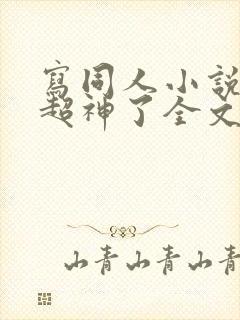 寫同人小說
超神了全文
山青山青山青